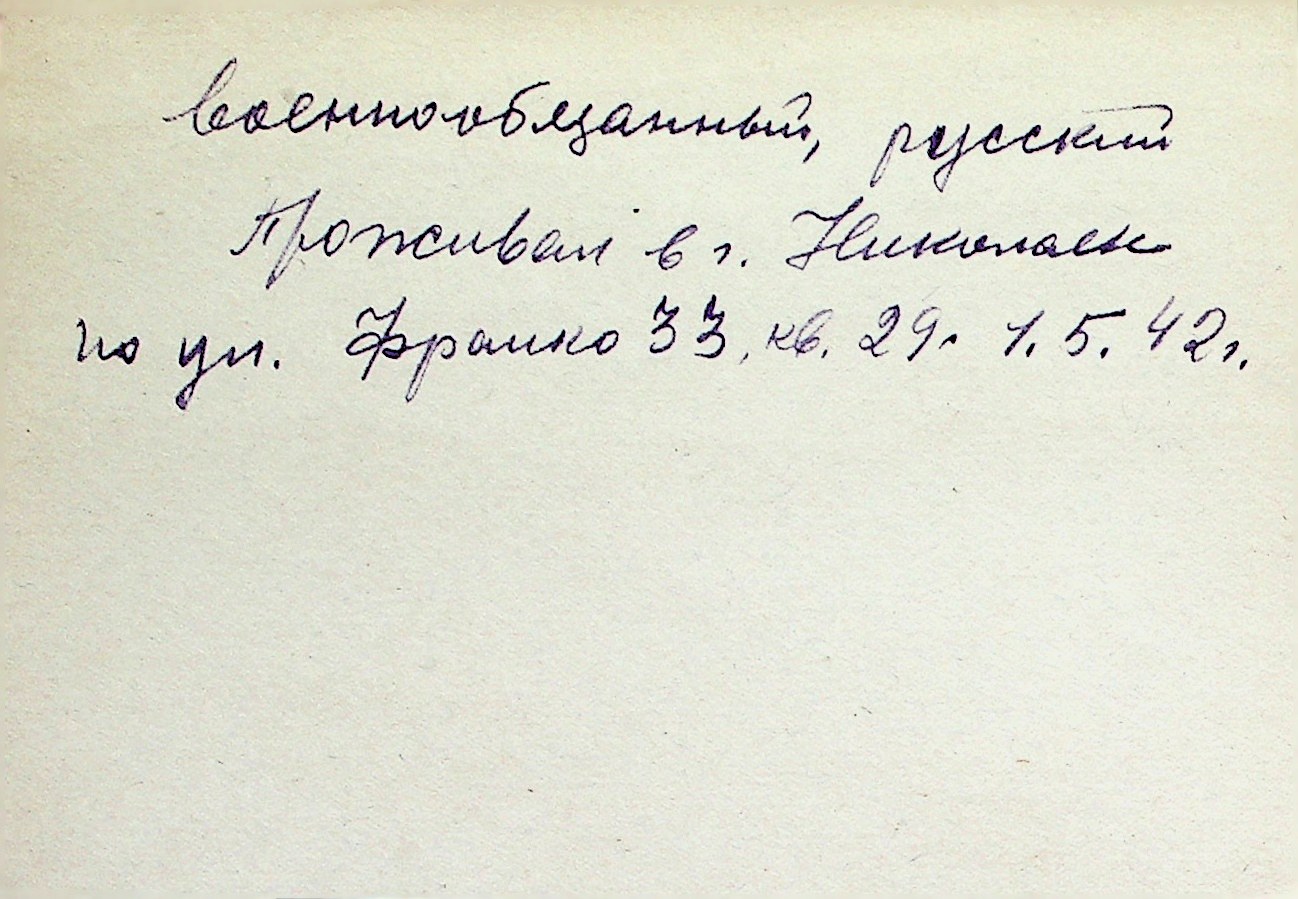 военнообязанный, русский
Проживал в г. Николаев
по ул. Франко 33, кв. 29. 1.5.42г.